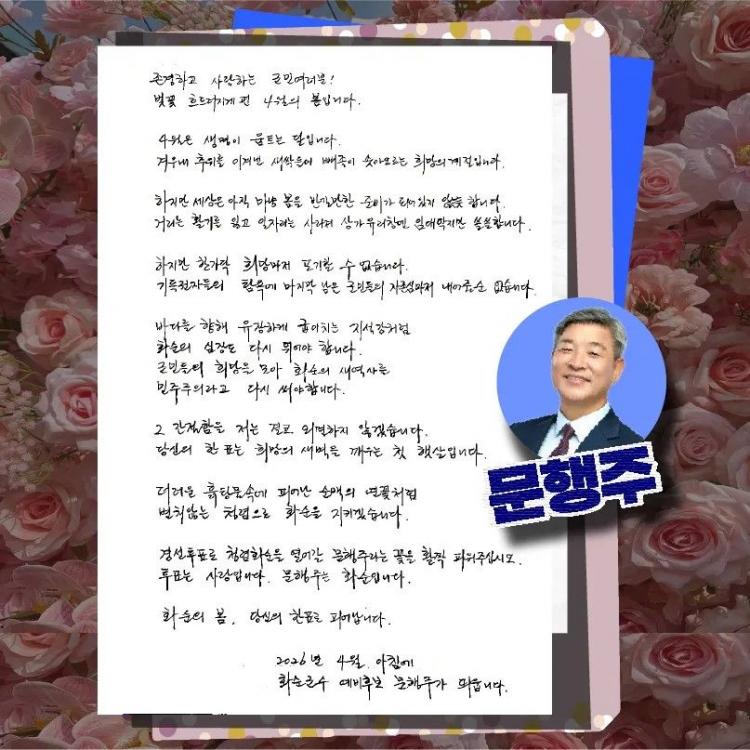 존경하고 사랑하는 군민여러분!
벚꽃 흐드러지게 핀 4월의 봄입니다.
4월은 생명이 움트는 달입니다.
겨우내 추위를 이겨낸 새싹들이 빼쪽이 솟아오르는 희망의 계절입니다.
하지만 세상은 아직 마냥 봄을 반길만한 준비가 되어있지 않은 듯 합니다.
거리는 활기를 잃고 일자리는 사라져 상가 유리창엔 임대딱지만 쓸쓸합니다.
하지만 한가닥 희망마저 포기할 수 없습니다.
기득권자들의 탐욕에 마지막 남은 군민들의 자존심마저 내어줄순 없습니다.
바다를 향해 유장하게 굽이치는 지석강처럼
화순의 심장도 다시 뛰어야 합니다.
군민들의 희망을 모아 화순의 새역사를
민주주의라고 다시 써야합니다.
그 간절함을 저는 결코 외면하지 않겠습니다.
당신의 한 표는 희망의 새벽을 깨우는 첫 햇살입니다.
더러운 흙탕물속에 피어난 순백의 연꽃처럼
변치않는 청렴으로 화순을 지키겠습니다.
경선투표로 청렴화순을 열어갈 문행주라는 꽃을 활짝 피워주십시오.
투표는 사랑입니다. 문행주는 화순입니다.
화순의 봄, 당신의 한표로 피어납니다.
2026년 4월 아침에
화순군수 예비후보 문행주가 띄웁니다.
문행주